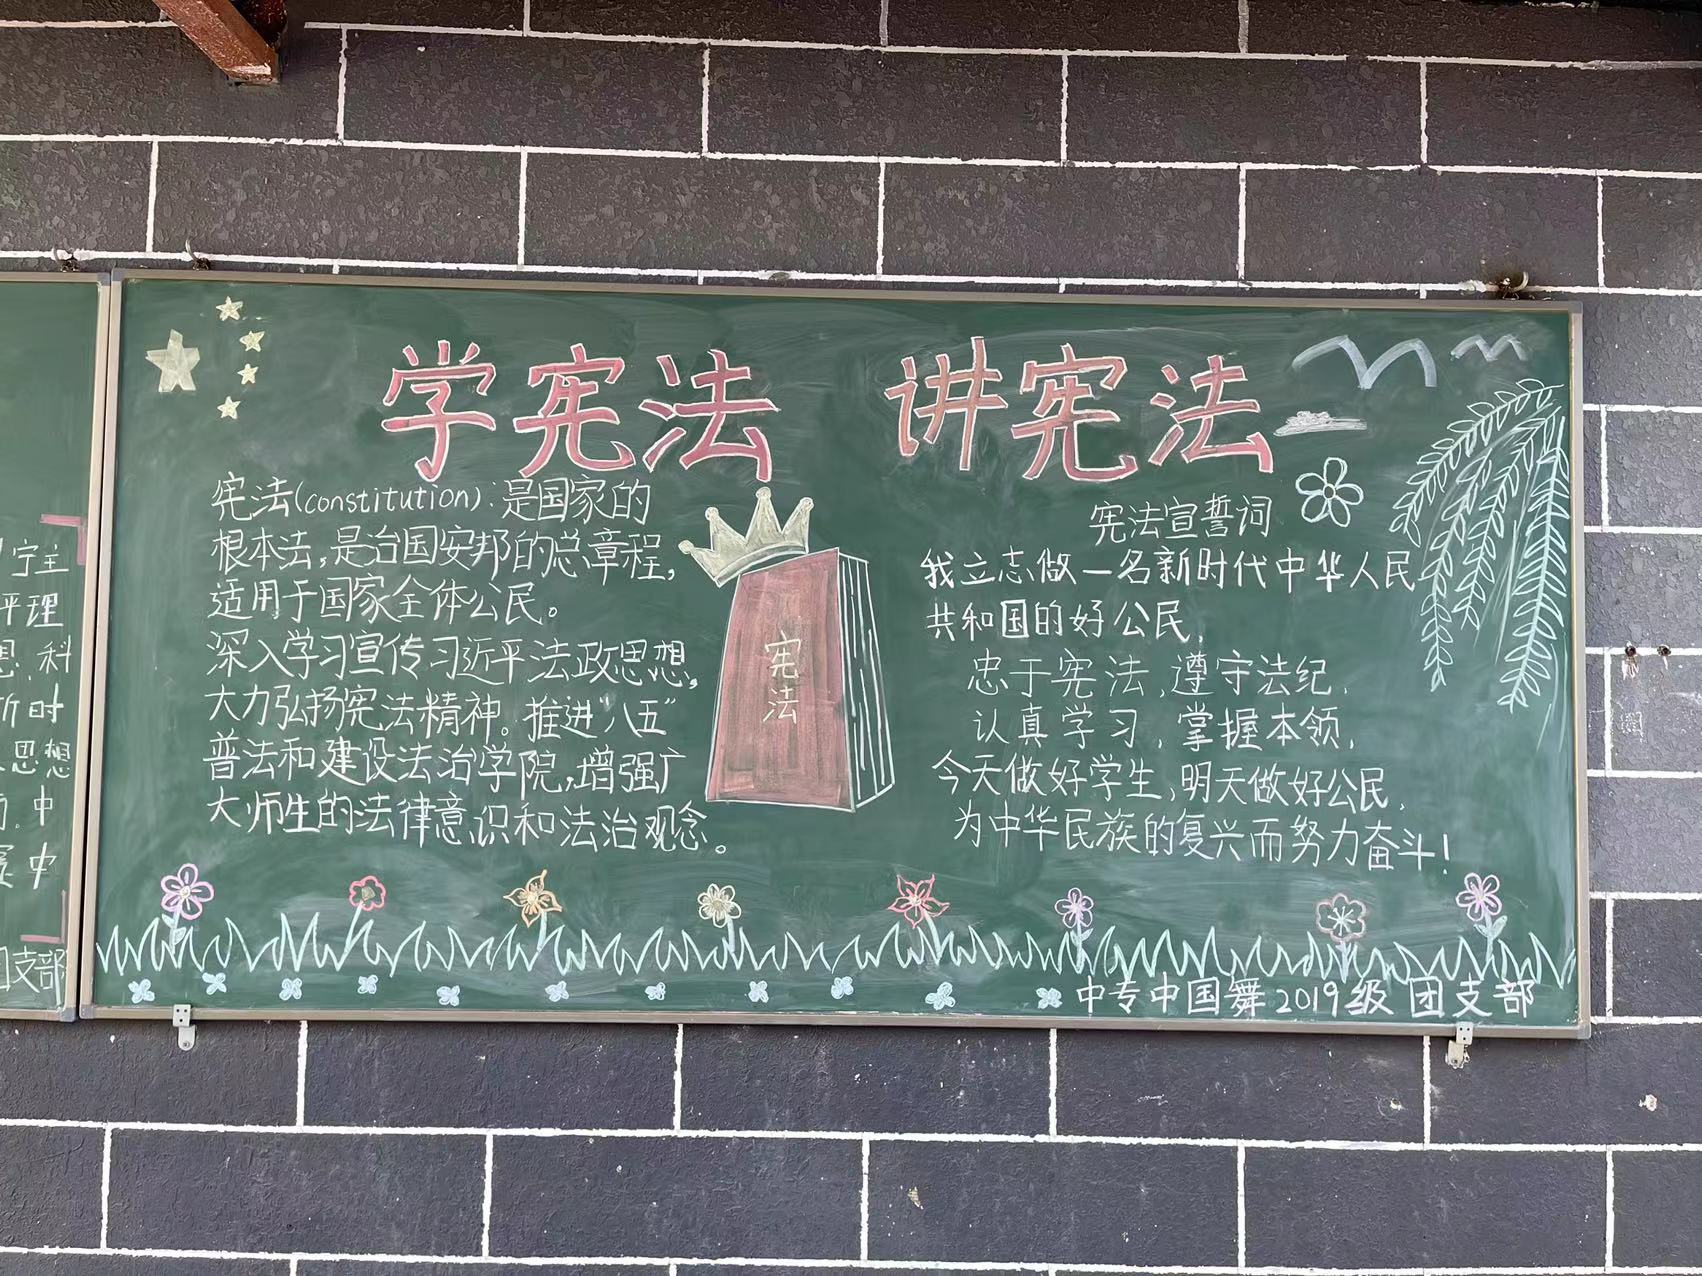 学宪法 讲宪法
宪法(constitution):是国家的
根本法,是治国安邦的总章程,
适用于国家全体公民。
深入学习宣传习近平法政思想,
大力弘扬宪法精神。推进"八五"
普法和建设法治学院,增强广
大师生的法律意识和法治观念。
宪法
宪法宣誓词
我立志做一名新时代中华人民
共和国的好公民,
忠于宪法,遵守法纪,
认真学习,掌握本领,
今天做好学生,明天做好公民,
为中华民族的复兴而努力奋斗!
中专中国舞2019级 团支部
宇主
平理
思,科
所时
思想
中
中
团支部